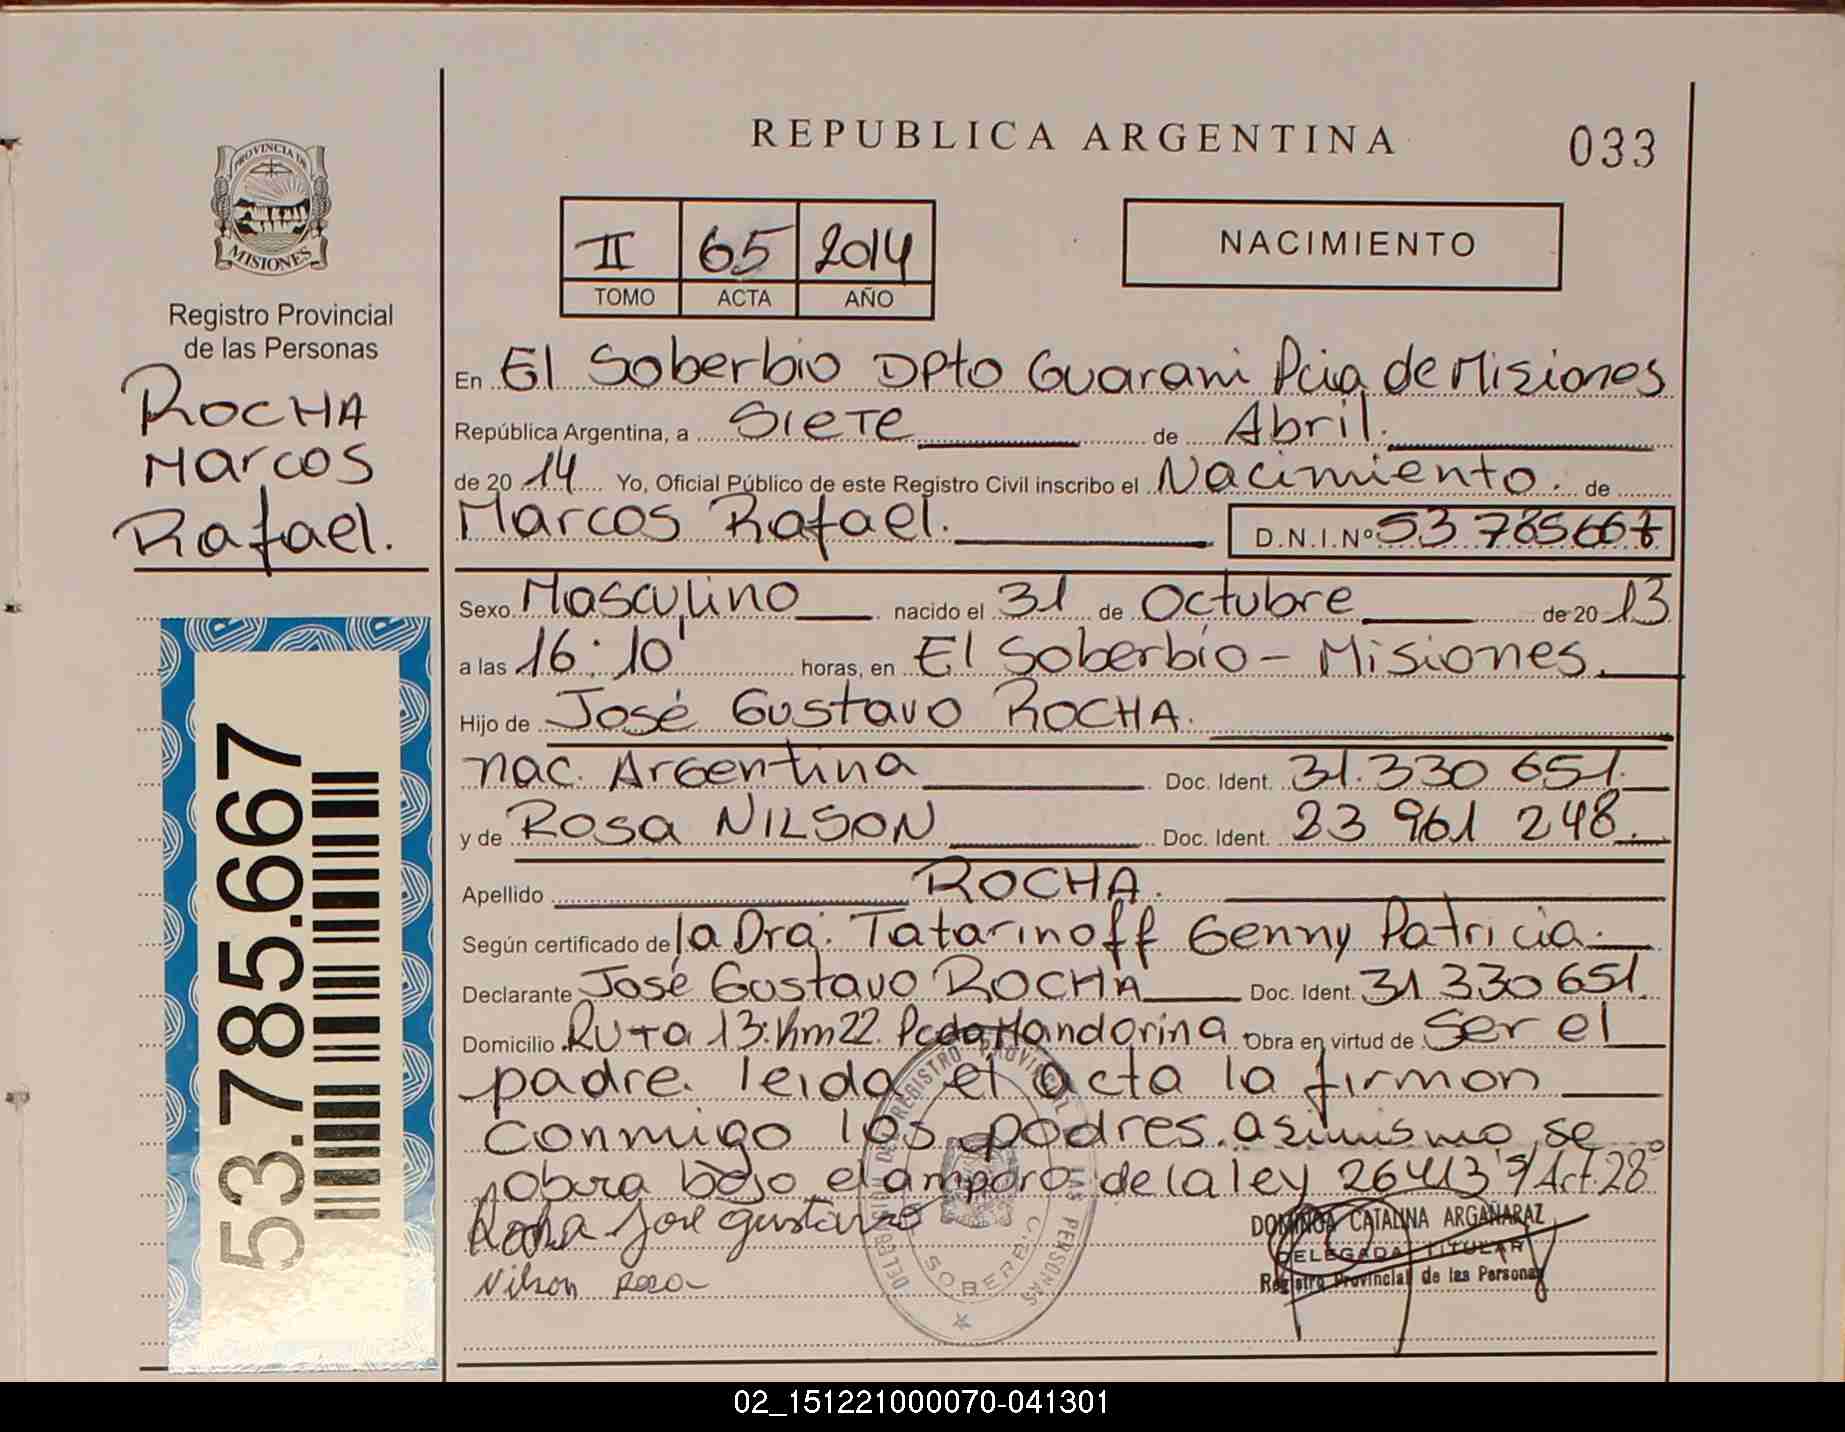 REPUBLICA ARGENTINA
033
PROVINCIA DE
MISIONES
Registro Provincial
de las Personas
ROCHA
Marcos
Rafael.
53.785.667
II 65 2014
TOMO ACTA AÑO
NACIMIENTO
En El Soberbio Dpto Guarani Pcia de Misiones
República Argentina, a Siete de Abril.
de 20 14 Yo, Oficial Público de este Registro Civil inscribo el Nacimiento. de
Marcos Rafael. D.N.I.Nº 53 785667
Sexo Masculino nacido el 31 de Octubre de 20 13
a las 16:10' horas, en El Soberbio - Misiones.
Hijo de José Gustavo ROCHA.
nac. Argentina Doc. Ident. 31.330 651.
y de Rosa NILSON Doc. Ident. 23 961 248.
Apellido ROCHA.
Según certificado de la Dra. Tatarinoff Genny Patricia.
Declarante José Gustavo ROCHA Doc. Ident. 31 330 651.
Domicilio Ruta 13: Km 22. Pcda Mandarina Obra en virtud de Ser el
padre. leida el acta la firman
conmigo los padres. asimismo se
obra bajo el amparo de la ley 26413 Art 28º
Rocha José gustavo
Nilson Rosa
REGISTRO PROVINCIAL DE LAS PERSONAS
SOBERBIO
DOMINGA CATALINA ARGAÑARAZ
DELEGADA TITULAR
Registro Provincial de las Personas
02_151221000070-041301